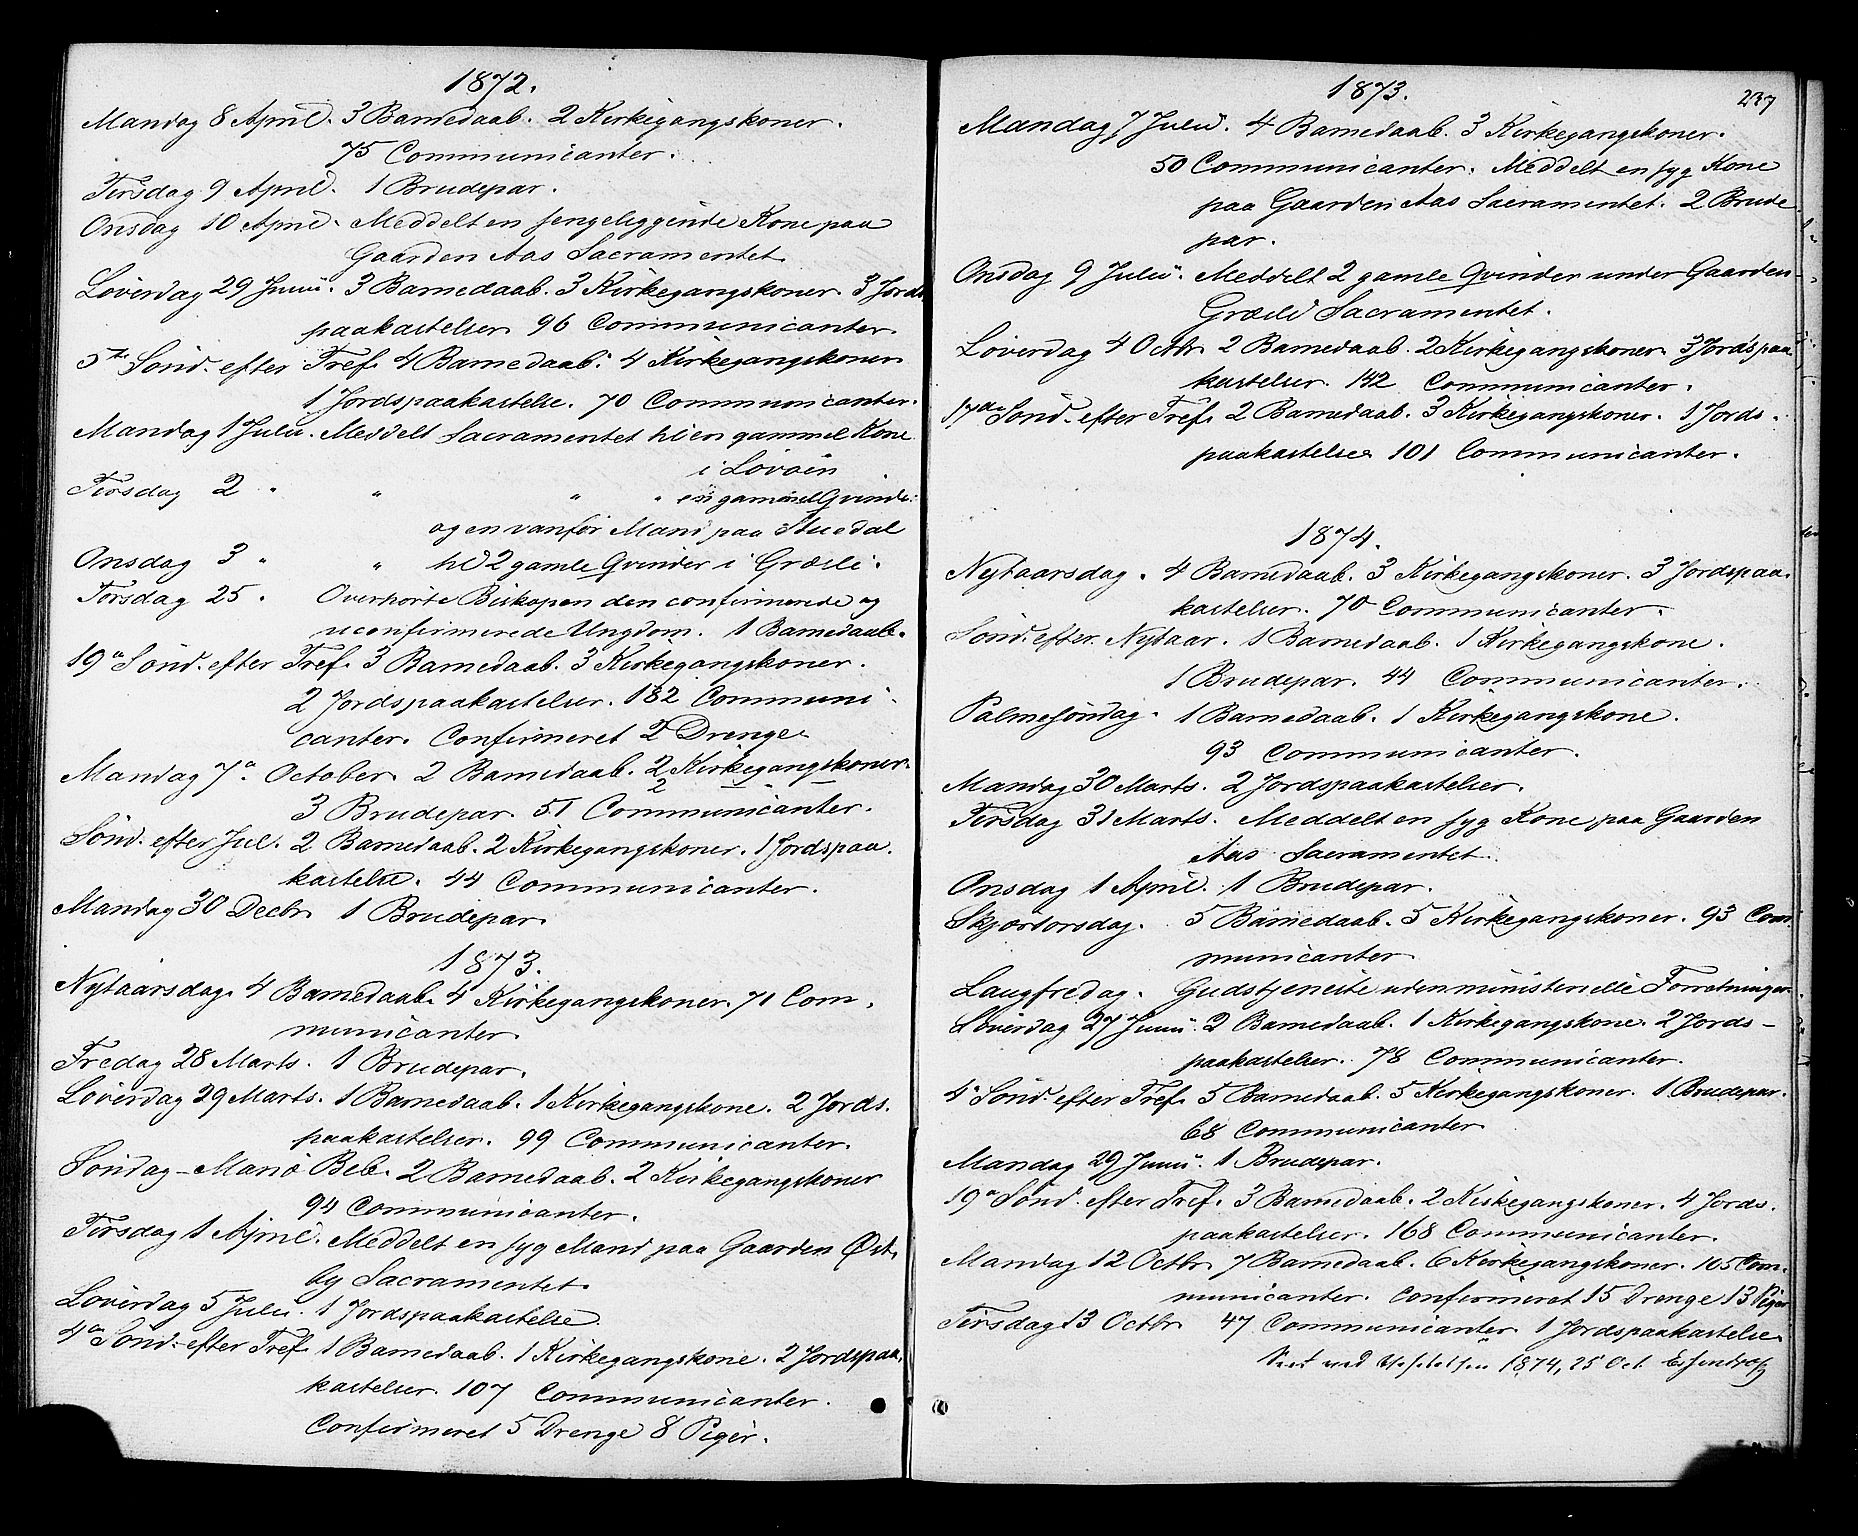 1872.
Mandag 8 April. 3 Barnedaab. 2 Kirkegangskoner.
75 Communicanter.
Tirsdag 9 April. 1 Brudepar.
Onsdag 10 April. Meddelt en sengeliggende Kone paa
Gaarden Aas Sacramentet.
Löverdag 29 Junii. 3 Barnedaab. 3 Kirkegangskoner. 3 Jords
paakastelser. 96 Communicanter.
5te Sönd. efter Tref. 4 Barnedaab. 4 Kirkegangskoner
1 Jordspaakastelse. 70 Communicanter.
Mandag 1 Julii. Meddelt Sacramentet til en gammel Kone
i Lövöen
Tirsdag 2 " " " " en gammel Qvinde
og en vanför Mand paa Stuedal
Onsdag 3 " " til 2 gamle Qvinder i Græsli.
Torsdag 25 " Overhörte Biskopen den confirmerede og
uconfirmerede Ungdom. 1 Barnedaab.
19e Sönd. efter Tref. 3 Barnedaab. 3 Kirkegangskoner.
2 Jordspaakastelser. 182 Communi
canter. Confirmeret 2 Drenge.
Mandag 7e October. 2 Barnedaab. 2 Kirkegangskoner.
2
3 Brudepar. 51 Communicanter.
Sönd. efter Jul. 2 Barnedaab. 2 Kirkegangskoner. 1 Jordspaa
kastelse. 44 Communicanter.
Mandag 30 Decbr. 1 Brudepar.
1873.
Nytaarsdag. 4 Barnedaab. 4 Kirkegangskoner. 71 Com
municanter.
Fredag 28 Marts. 1 Brudepar.
Löverdag 29 Marts. 1 Barnedaab. 1 Kirkegangskone. 2 Jords
paakastelser. 99 Communicanter.
Söndag - Mariö Beb. 2 Barnedaab. 2 Kirkegangskoner
94 Communicanter.
Tirsdag 1 April. Meddelt en syg Mand paa Gaarden Øst
by Sacramentet.
Löverdag 5 Julii. 1 Jordspaakastelse.
4de Sönd. efter Tref. 1 Barnedaab. 1 Kirkegangskone. 2 Jordspaa
kastelser. 107 Communicanter.
Confirmeret 5 Drenge 8 Piger.
1873.
237
Mandag 7 Julii. 4 Barnedaab. 3 Kirkegangskoner.
50 Communicanter. Meddelt en syg Kone
paa Gaarden Aas Sacramentet. 2 Brude
par.
Onsdag 9 Julii. Meddelt 2 gamle Qvinder under Gaarden
Græsli Sacramentet.
Löverdag 4 Octbr. 2 Barnedaab. 2 Kirkegangskoner. 3 Jordspaa
kastelser. 142 Communicanter.
17de Sönd. efter Tref. 2 Barnedaab. 3 Kirkegangskoner. 1 Jords
paakastelse. 101 Communicanter.
1874.
Nytaarsdag. 4 Barnedaab. 3 Kirkegangskoner. 3 Jordspaa
kastelser. 70 Communicanter.
Sönd. efter Nytaar. 1 Barnedaab. 1 Kirkegangskone.
1 Brudepar. 44 Communicanter.
Palmesöndag. 1 Barnedaab. 1 Kirkegangskone.
93 Communicanter.
Mandag 30 Marts. 2 Jordspaakastelser.
Tirsdag 31 Marts. Meddelt en syg Kone paa Gaarden
Aas Sacramentet.
Onsdag 1 April. 1 Brudepar.
Skjærtorsdag. 5 Barnedaab. 5 Kirkegangskoner. 93 Com
municanter
Langfredag. Gudstjeneste uden ministerielle Forretninger.
Löverdag 27 Junii. 2 Barnedaab. 1 Kirkegangskone. 2 Jords
paakastelser. 78 Communicanter.
4e Sönd. efter Tref. 5 Barnedaab. 5 Kirkegangskoner. 1 Brudepar.
68 Communicanter
Mandag 29 Junii. 1 Brudepar.
19e Sönd. efter Tref. 3 Barnedaab. 2 Kirkegangskoner. 4 Jords
paakastelser. 168 Communicanter.
Mandag 12 Octbr. 7 Barnedaab. 6 Kirkegangskoner. 105 Com
municanter. Confirmeret 15 Drenge 13 Piger
Tirsdag 13 Octbr. 47 Communicanter. 1 Jordspaakastelse.
Seet ved 1874, 25 Oct. Essendrop